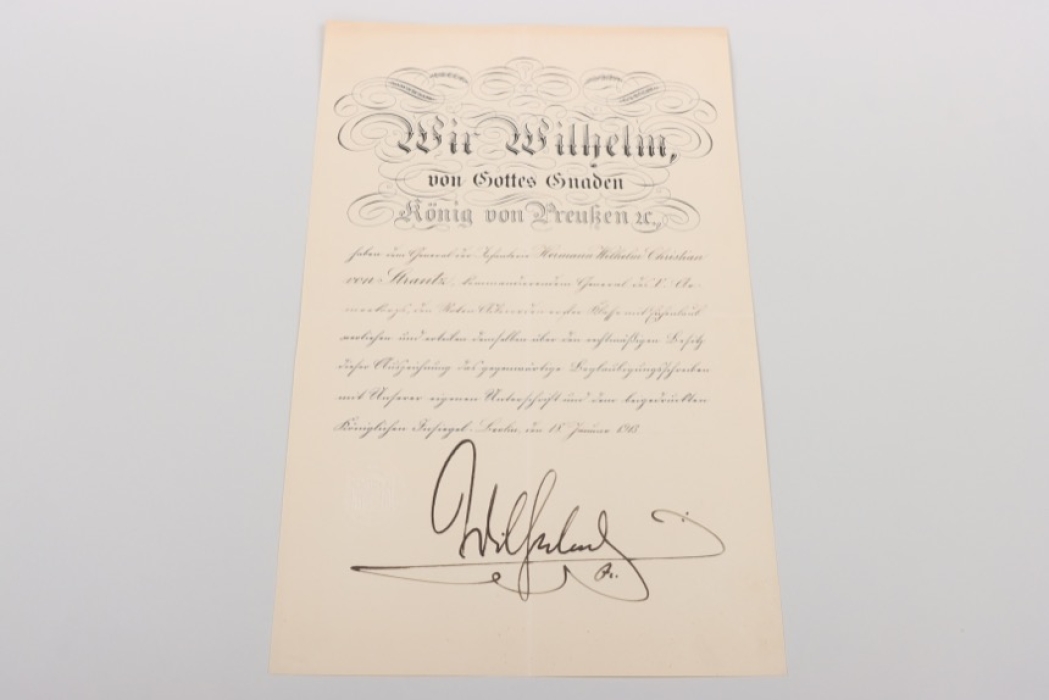 Wir Wilhelm,
von Gottes Gnaden
König von Preußen ꝛc.,
haben dem General der Infanterie Hermann Wilhelm Christian
von Strantz, kommandierendem General des V. Ar-
meekorps, den Roten Adlerorden erster Klasse mit Eichenlaub
verliehen und erteilen demselben über den rechtmäßigen Besitz
dieser Auszeichnung das gegenwärtige Beglaubigungsschreiben
mit Unserer eigenen Unterschrift und dem beigedruckten
Königlichen Insiegel. Berlin, den 18. Januar 1913
Wilhelm